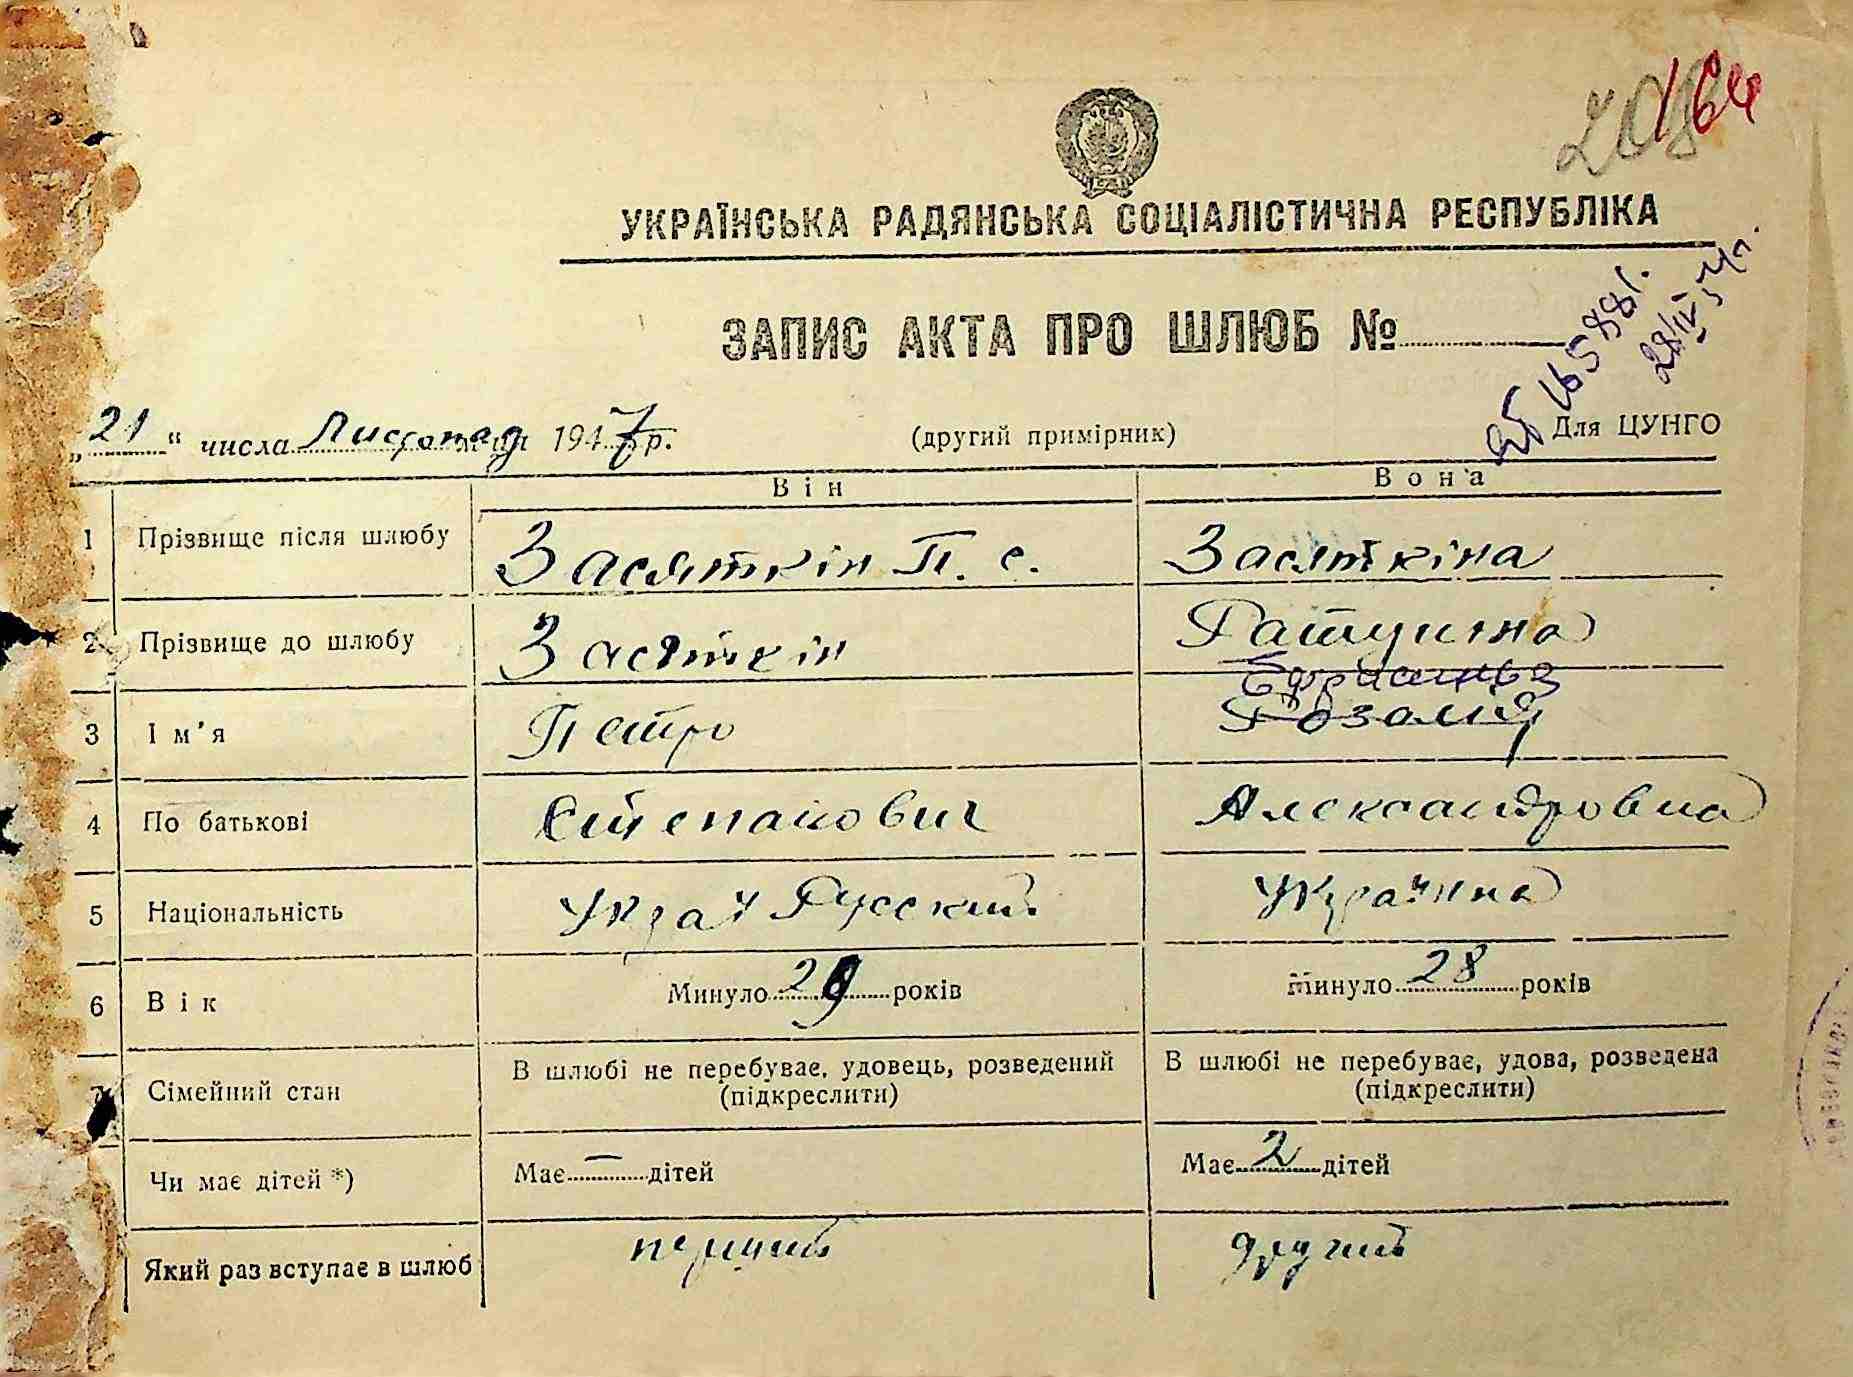 164
208
УКРАЇНСЬКА РАДЯНСЬКА СОЦІАЛІСТИЧНА РЕСПУБЛІКА
ЗАПИС АКТА ПРО ШЛЮБ №
165881.
28/IV 54р.
„21“ числа Листопад 1947р. (другий примірник) Для ЦУНГО
Він Вона
1 Прізвище після шлюбу Засяткін П. С. Засяткіна
2 Прізвище до шлюбу Засяткін Ратушна
3 Ім'я Петро Розалія
4 По батькові Степанович Александровна
5 Національність Русский Українка
6 Вік Минуло 29 років Минуло 28 років
7 Сімейний стан В шлюбі не перебуває, удовець, розведений (підкреслити) В шлюбі не перебуває, удова, розведена (підкреслити)
Чи має дітей *) Має — дітей Має 2 дітей
Який раз вступає в шлюб перший другий